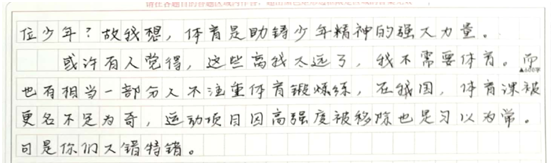 位少年？故我想，体育是助铸少年精神的强大力量。
或许有人觉得，这些离我太远了，我不需要体育。而
也有相当一部分人不注重体育锻炼练，在我国，体育课被
更名不足为奇，运动项目因高强度被移除也是习以为常。
可是你们大错特错。